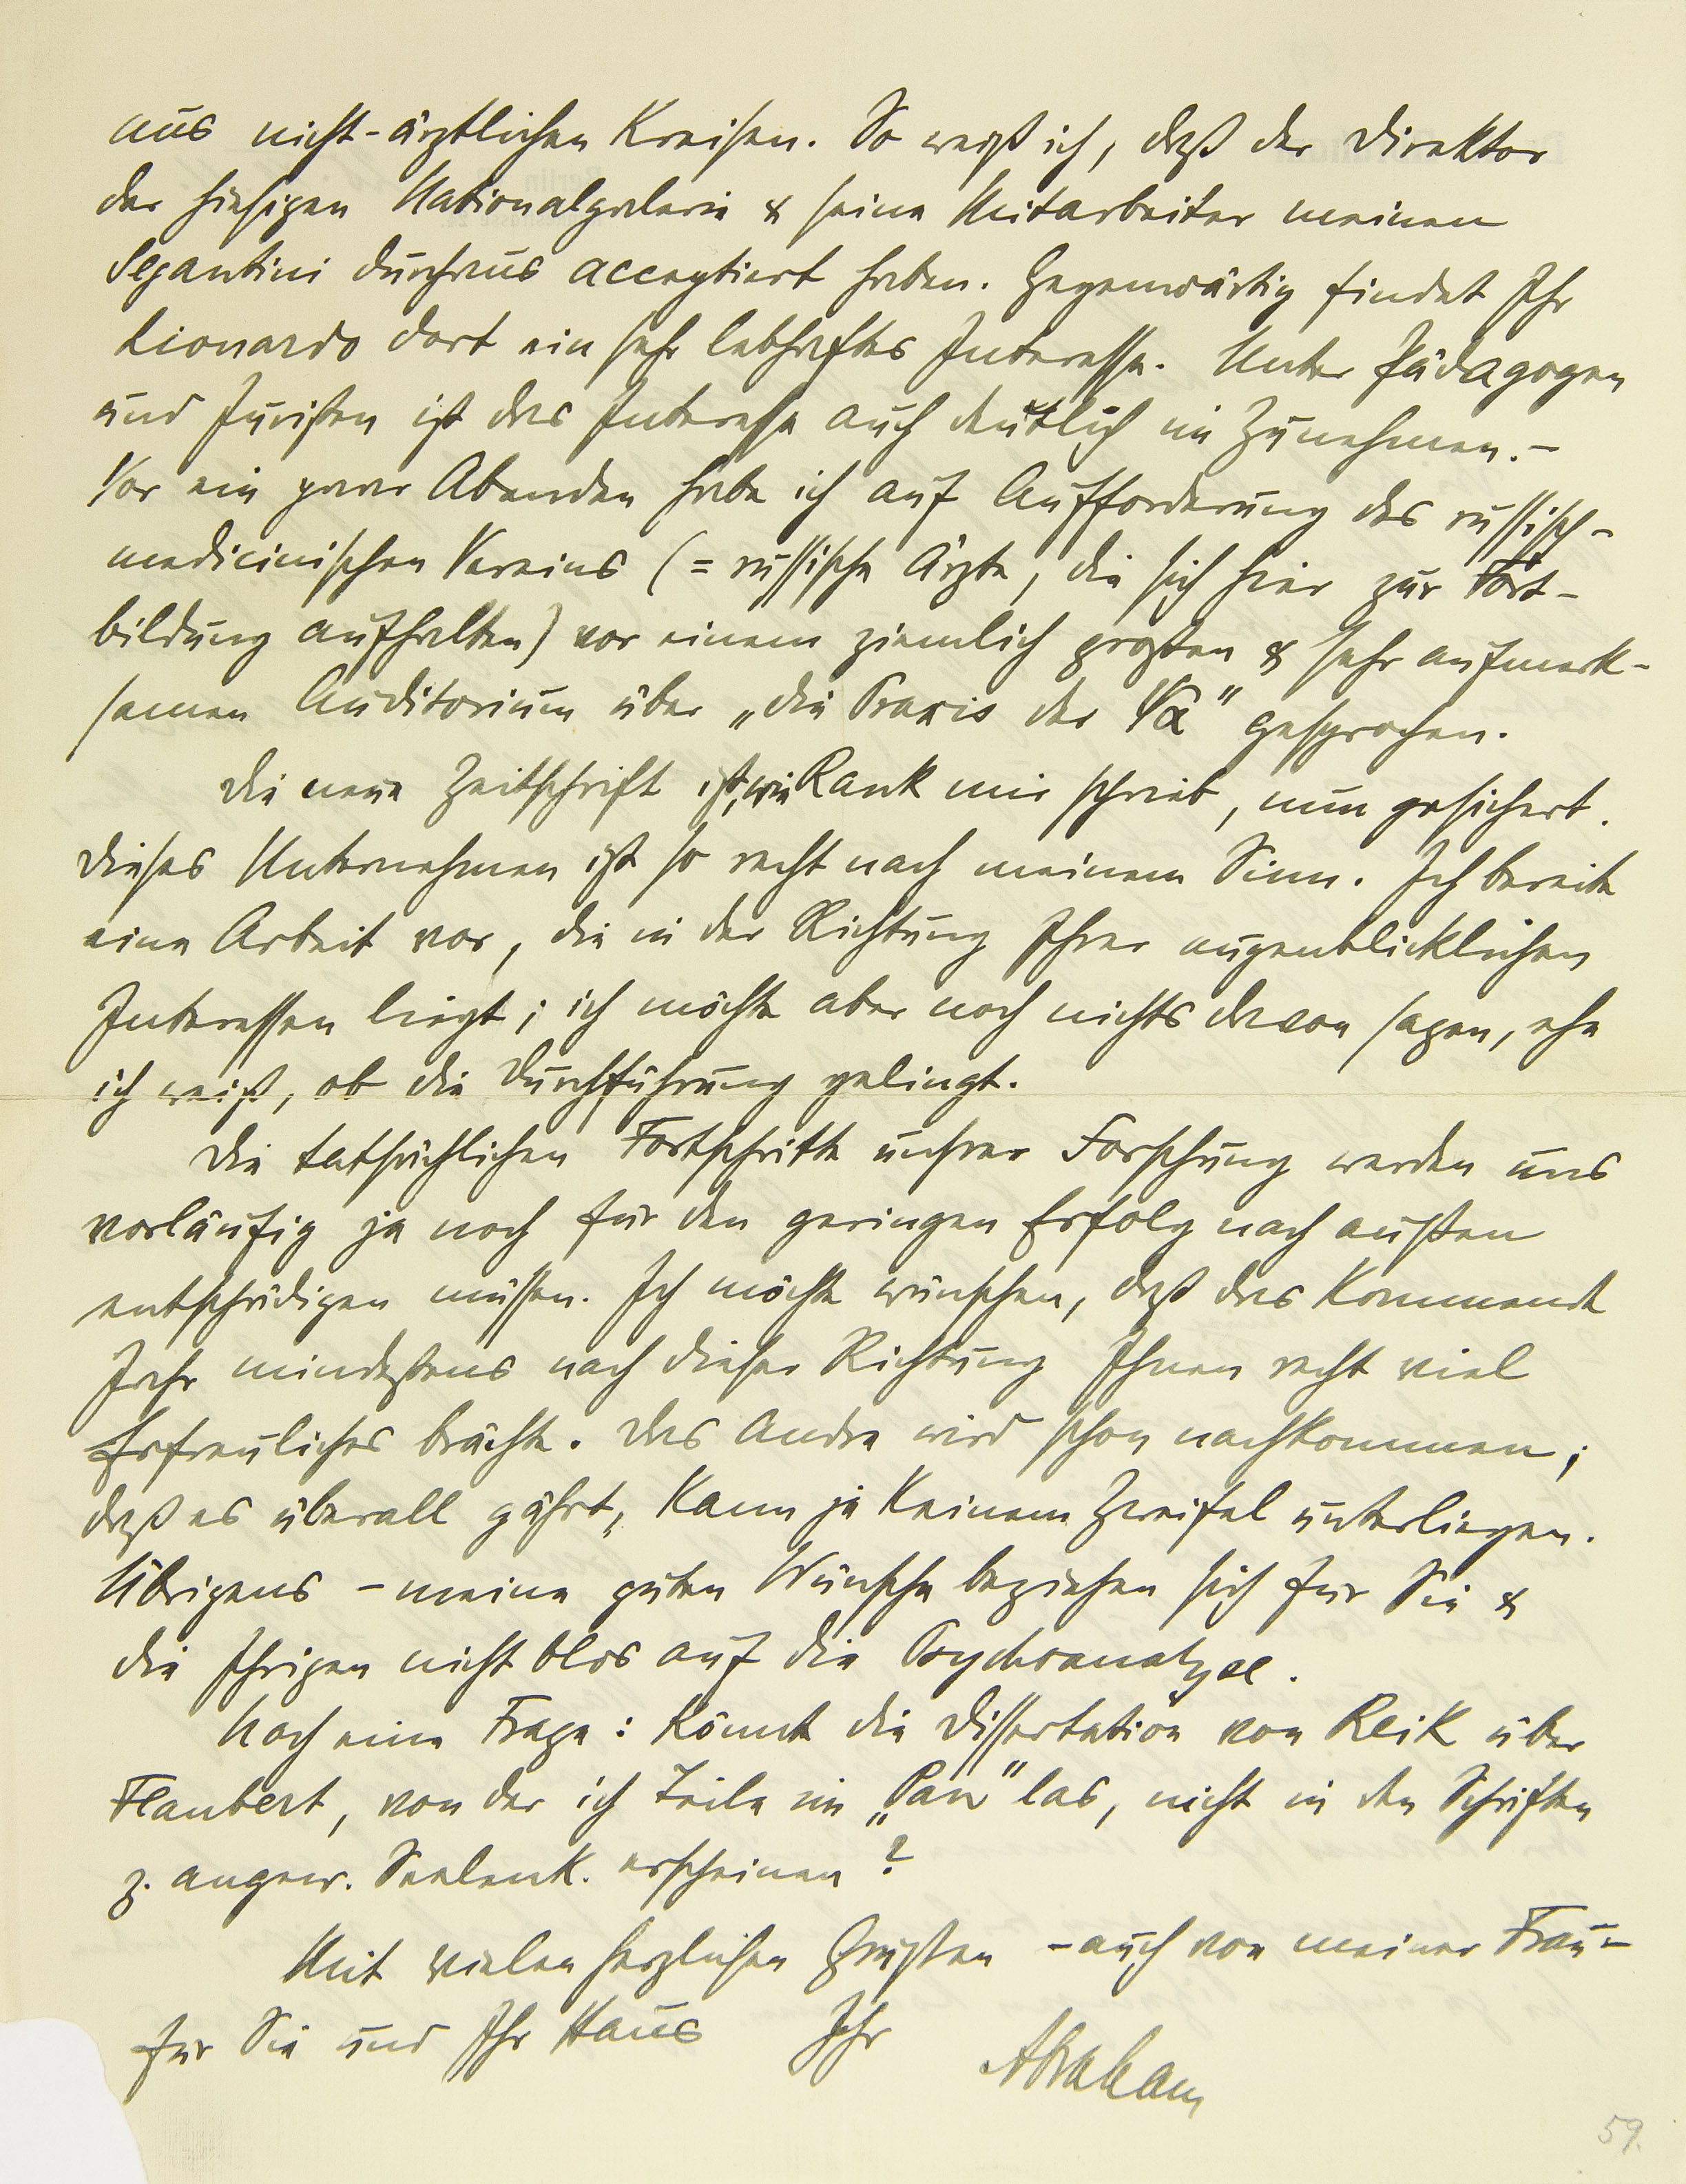 aus nicht-ärztlichen Kreisen. So weiß ich, daß der Direktor
der hiesigen Nationalgalerie & seine Mitarbeiter meinen
Segantini durchaus acceptiert haben. Gegenwärtig findet Ihr
Lionardo dort ein sehr lebhaftes Interesse. Unter Pädagogen
und Juristen ist das Interesse auch deutlich im Zunehmen. –
Vor ein paar Abenden habe ich auf Aufforderung des russisch-
medicinischen Vereins (= russische Ärzte, die sich hier zur Fort-
bildung aufhalten) vor einem ziemlich großen & sehr aufmerk-
samen Auditorium über „die Praxis der ΨΑ" gesprochen.
Die neue Zeitschrift ist, wie Rank mir schrieb, nun gesichert.
Dieses Unternehmen ist so recht nach meinem Sinn. Ich bereite
eine Arbeit vor, die in der Richtung Ihrer augenblicklichen
Interessen liegt; ich möchte aber noch nichts davon sagen, ehe
ich weiß, ob die Durchführung gelingt.
Die tatsächlichen Fortschritte unsrer Forschung werden uns
vorläufig ja noch für den geringen Erfolg nach außen
entschädigen müssen. Ich möchte wünschen, daß das kommende
Jahr mindestens nach dieser Richtung Ihnen recht viel
Erfreuliches brächte. Das Andre wird schon nachkommen;
daß es überall gährt, kann ja keinem Zweifel unterliegen.
Übrigens – meine guten Wünsche beziehen sich für Sie &
die Ihrigen nicht blos auf die Psychoanalyse.
Noch eine Frage: Könnte die Dissertation von Reik über
Flaubert, von der ich Teile im „Pan" las, nicht in den Schriften
z. angew. Seelenk. erscheinen?
Mit vielen herzlichen Grüßen – auch von meiner Frau –
für Sie und Ihr Haus Ihr
Abraham
59.